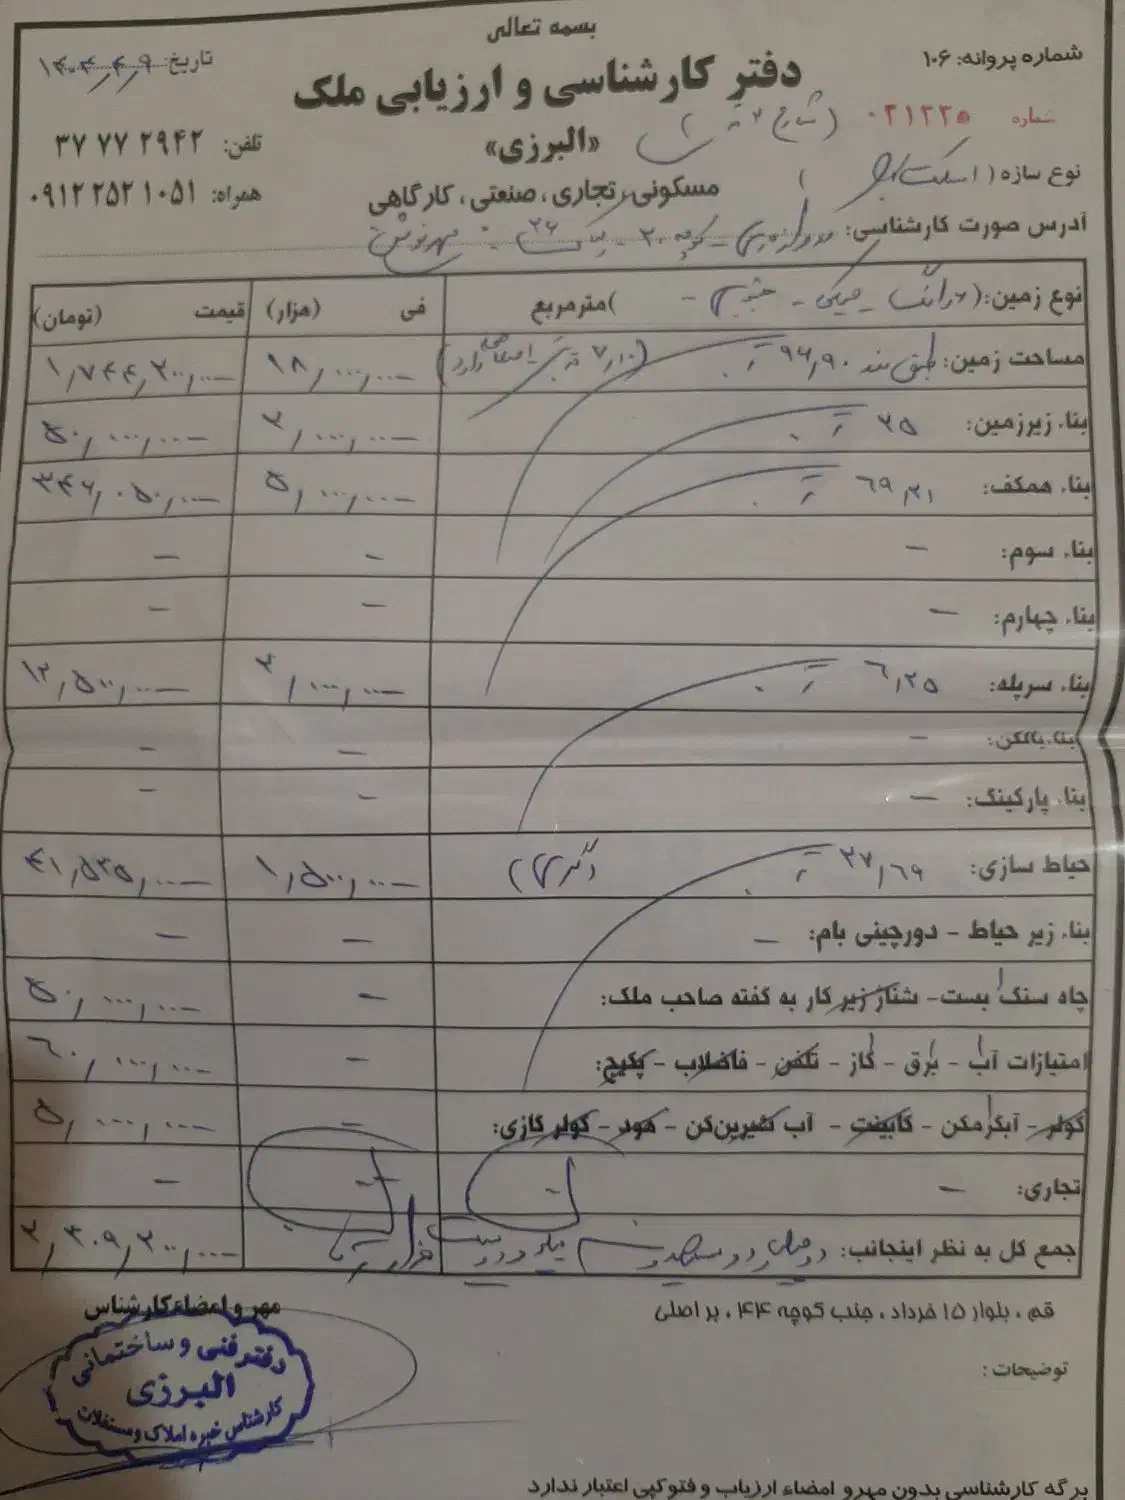 بسمه تعالی
شماره پروانه: ۱۰۶
تاریخ: ۱۴۰۳,۴,۹
دفتر کارشناسی و ارزیابی ملک
شماره ۰۲۱۲۲
«البرزی»
تلفن: ۲۹۴۲ ۷۷ ۳۷
نوع سازه (اسکلت
مسکونی، تجاری، صنعتی، کارگاهی
همراه: ۰۹۱۲۲۵۲۱۰۵۱
آدرس صورت کارشناسی: کوچه ۲۰ - پلاک ۲۶
نوع زمین: ( )مترمربع فی (هزار) قیمت (تومان)
مساحت زمین: طبق سند ۹۶,۹۰ (۷,۱۰ اصلاحی دارد) ۱۸,۰۰۰,۰۰۰ ۱,۷۴۴,۲۰۰,۰۰۰
بناء زیرزمین: ۲۵ ۲,۰۰۰,۰۰۰ ۵۰,۰۰۰,۰۰۰
بناء همکف: ۶۹,۲۱ ۵,۰۰۰,۰۰۰ ۳۴۶,۰۵۰,۰۰۰
بناء سوم: - - -
بناء چهارم: - - -
بناء سرپله: ۶,۲۵ ۲,۰۰۰,۰۰۰ ۱۲,۵۰۰,۰۰۰
بناء بالکن: - - -
بناء پارکینگ: - - -
حیاط سازی: ۲۷,۶۹ ۱,۵۰۰,۰۰۰ ۴۱,۵۳۵,۰۰۰
بناء زیر حیاط - دورچینی بام: - - -
چاه سنگ بست - شناژ زیر کار به گفته صاحب ملک: - ۵۰,۰۰۰,۰۰۰
امتیازات آب - برق - گاز - تلفن - فاضلاب - پکیج: - ۶۰,۰۰۰,۰۰۰
کولر - آبگرمکن - کابینت - آب شیرین‌کن - هود - کولر گازی: - ۵,۰۰۰,۰۰۰
تجاری: - - -
جمع کل به نظر اینجانب: ۲,۳۰۹,۲۰۰,۰۰۰
مهر و امضاء کارشناس
قم، بلوار ۱۵ خرداد، جنب کوچه ۴۴، بر اصلی
دفتر فنی و ساختمانی
البرزی
کارشناس خبره املاک و مستغلات
توضیحات:
برگه کارشناسی بدون مهر و امضاء ارزیاب و فتوکپی اعتبار ندارد